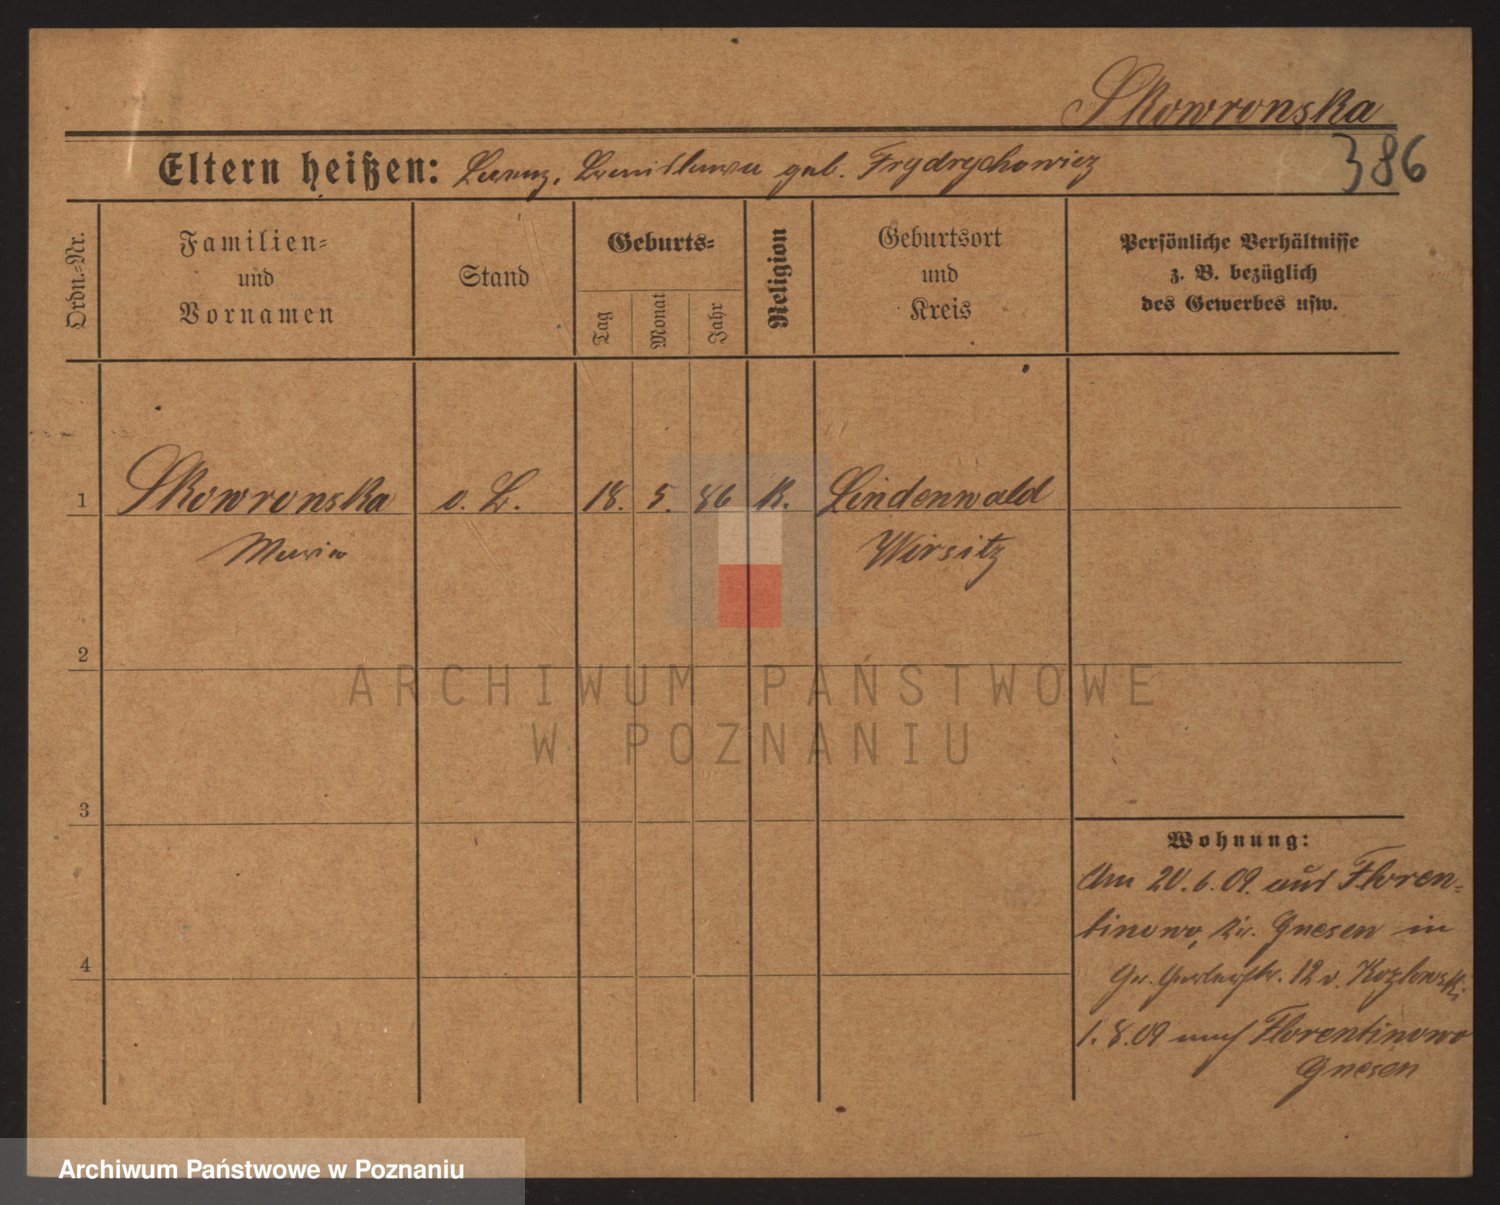 Skowronska
386
Eltern heißen: Lorenz, Bronislawa geb. Frydrychowicz
Ordn.-Nr.
Familien-
und
Vornamen
Stand
Geburts-
Tag
Monat
Jahr
Religion
Geburtsort
und
Kreis
Persönliche Verhältnisse
z. B. bezüglich
des Gewerbes usw.
1 Skowronska o. B. 18. 5. 86 K. Lindenwald
Maria Wirsitz
2
ARCHIWUM PAŃSTWOWE
W POZNANIU
3
Wohnung:
Am 20.6.09. aus Floren-
tinowo, Kr. Gnesen in
12 v. Kozlowski
4
1.8.09 nach Florentinowo
Gnesen
Archiwum Państwowe w Poznaniu